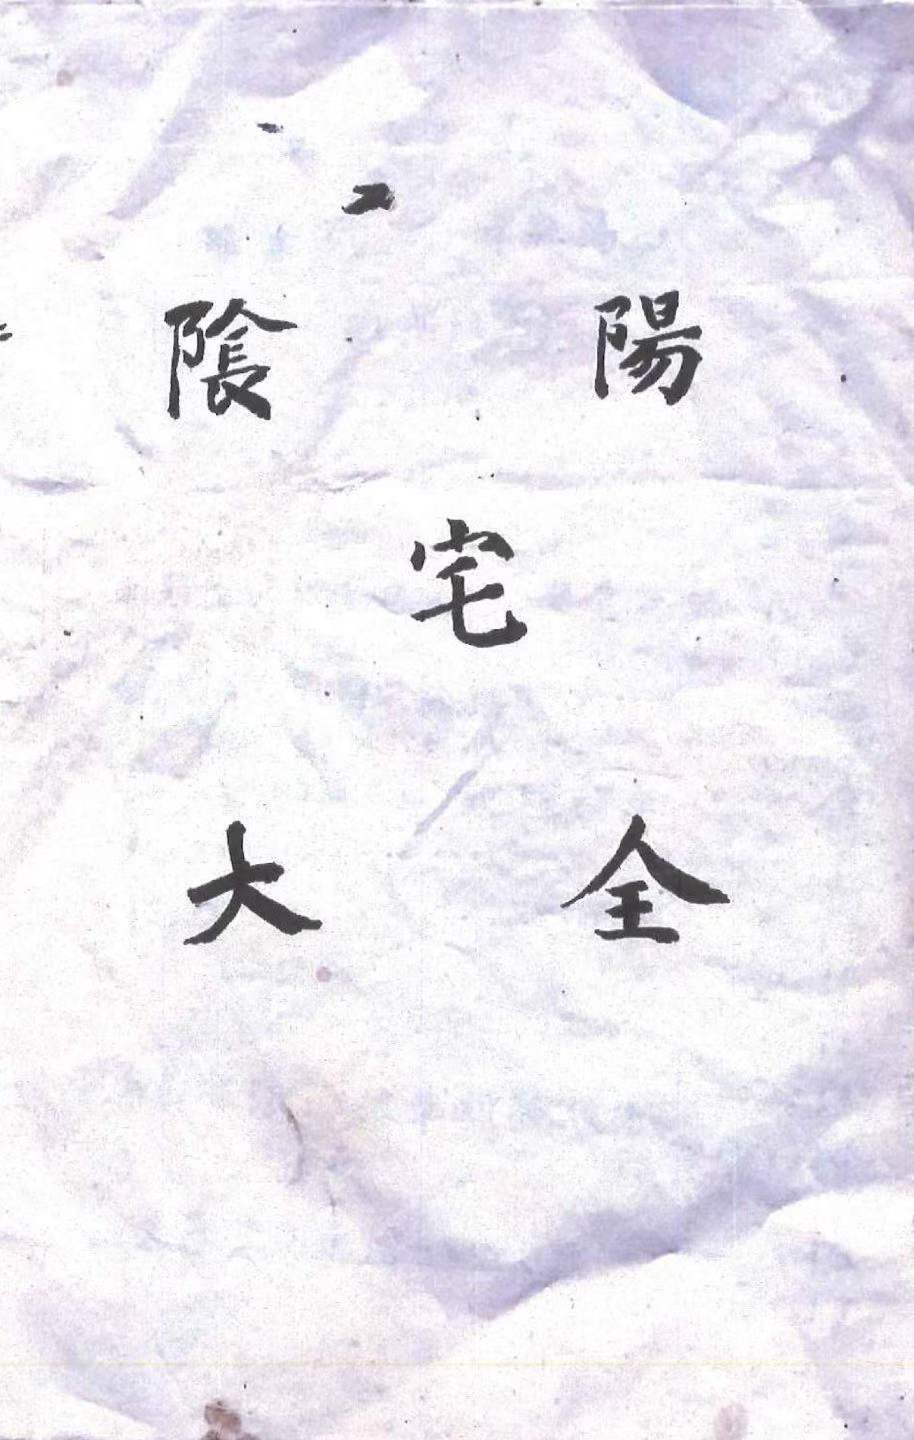 陰陽
宅
大全